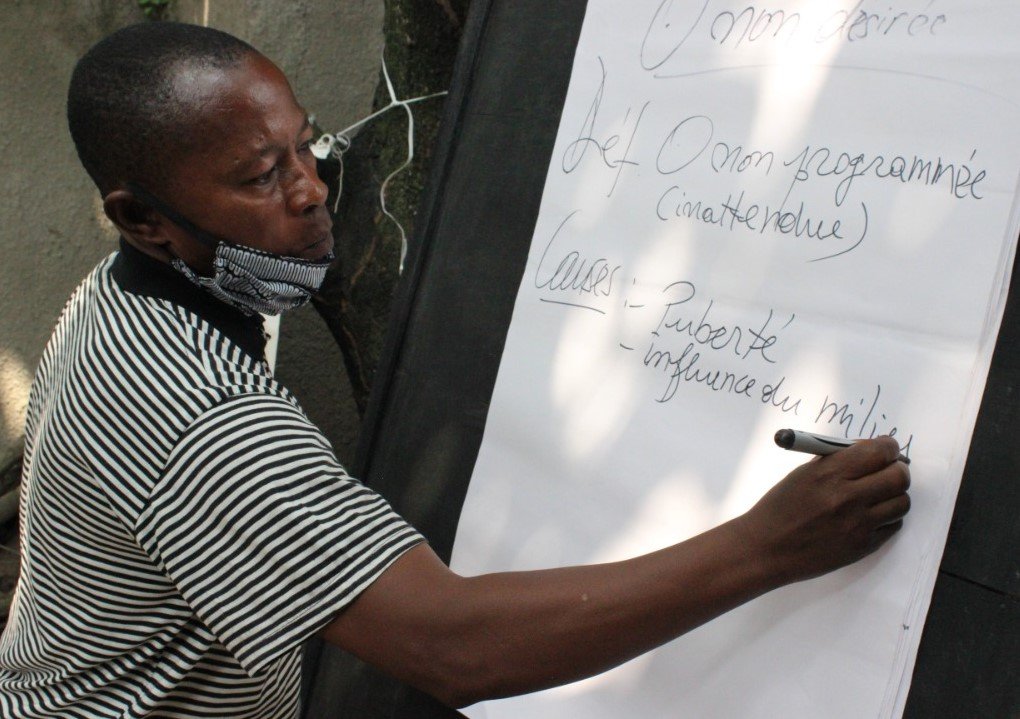 O non désirée
Déf O non programmée
(inattendue)
Causes :- Puberté
- influence du milieu